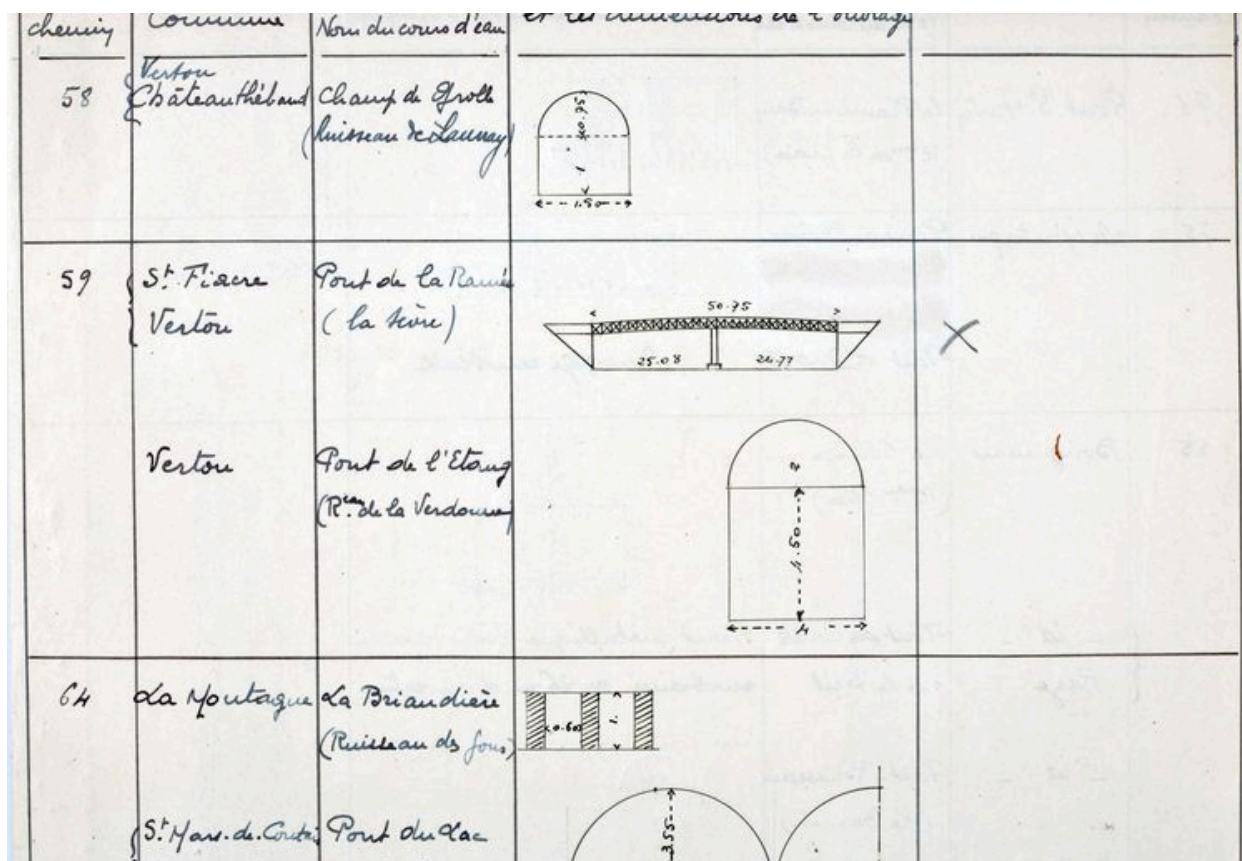 chemin Commune Nom du cours d'eau et les dimensions de l'ouvrage
Vertou
58 Châteauthébaud Champ de Grolle
(Ruisseau de Launay)
0.75
1
1.50
59 St. Fiacre Pont de la Ramée
Vertou (la Sèvre)
50.75
25.08 24.77
Vertou Pont de l'Etang
(R.eau de la Verdonnie)
2
4.50
4
64 La Montagne La Briandière
(Ruisseau des fous)
0.60 1.
St. Mars-de-Coutais Pont du Lac
3.55